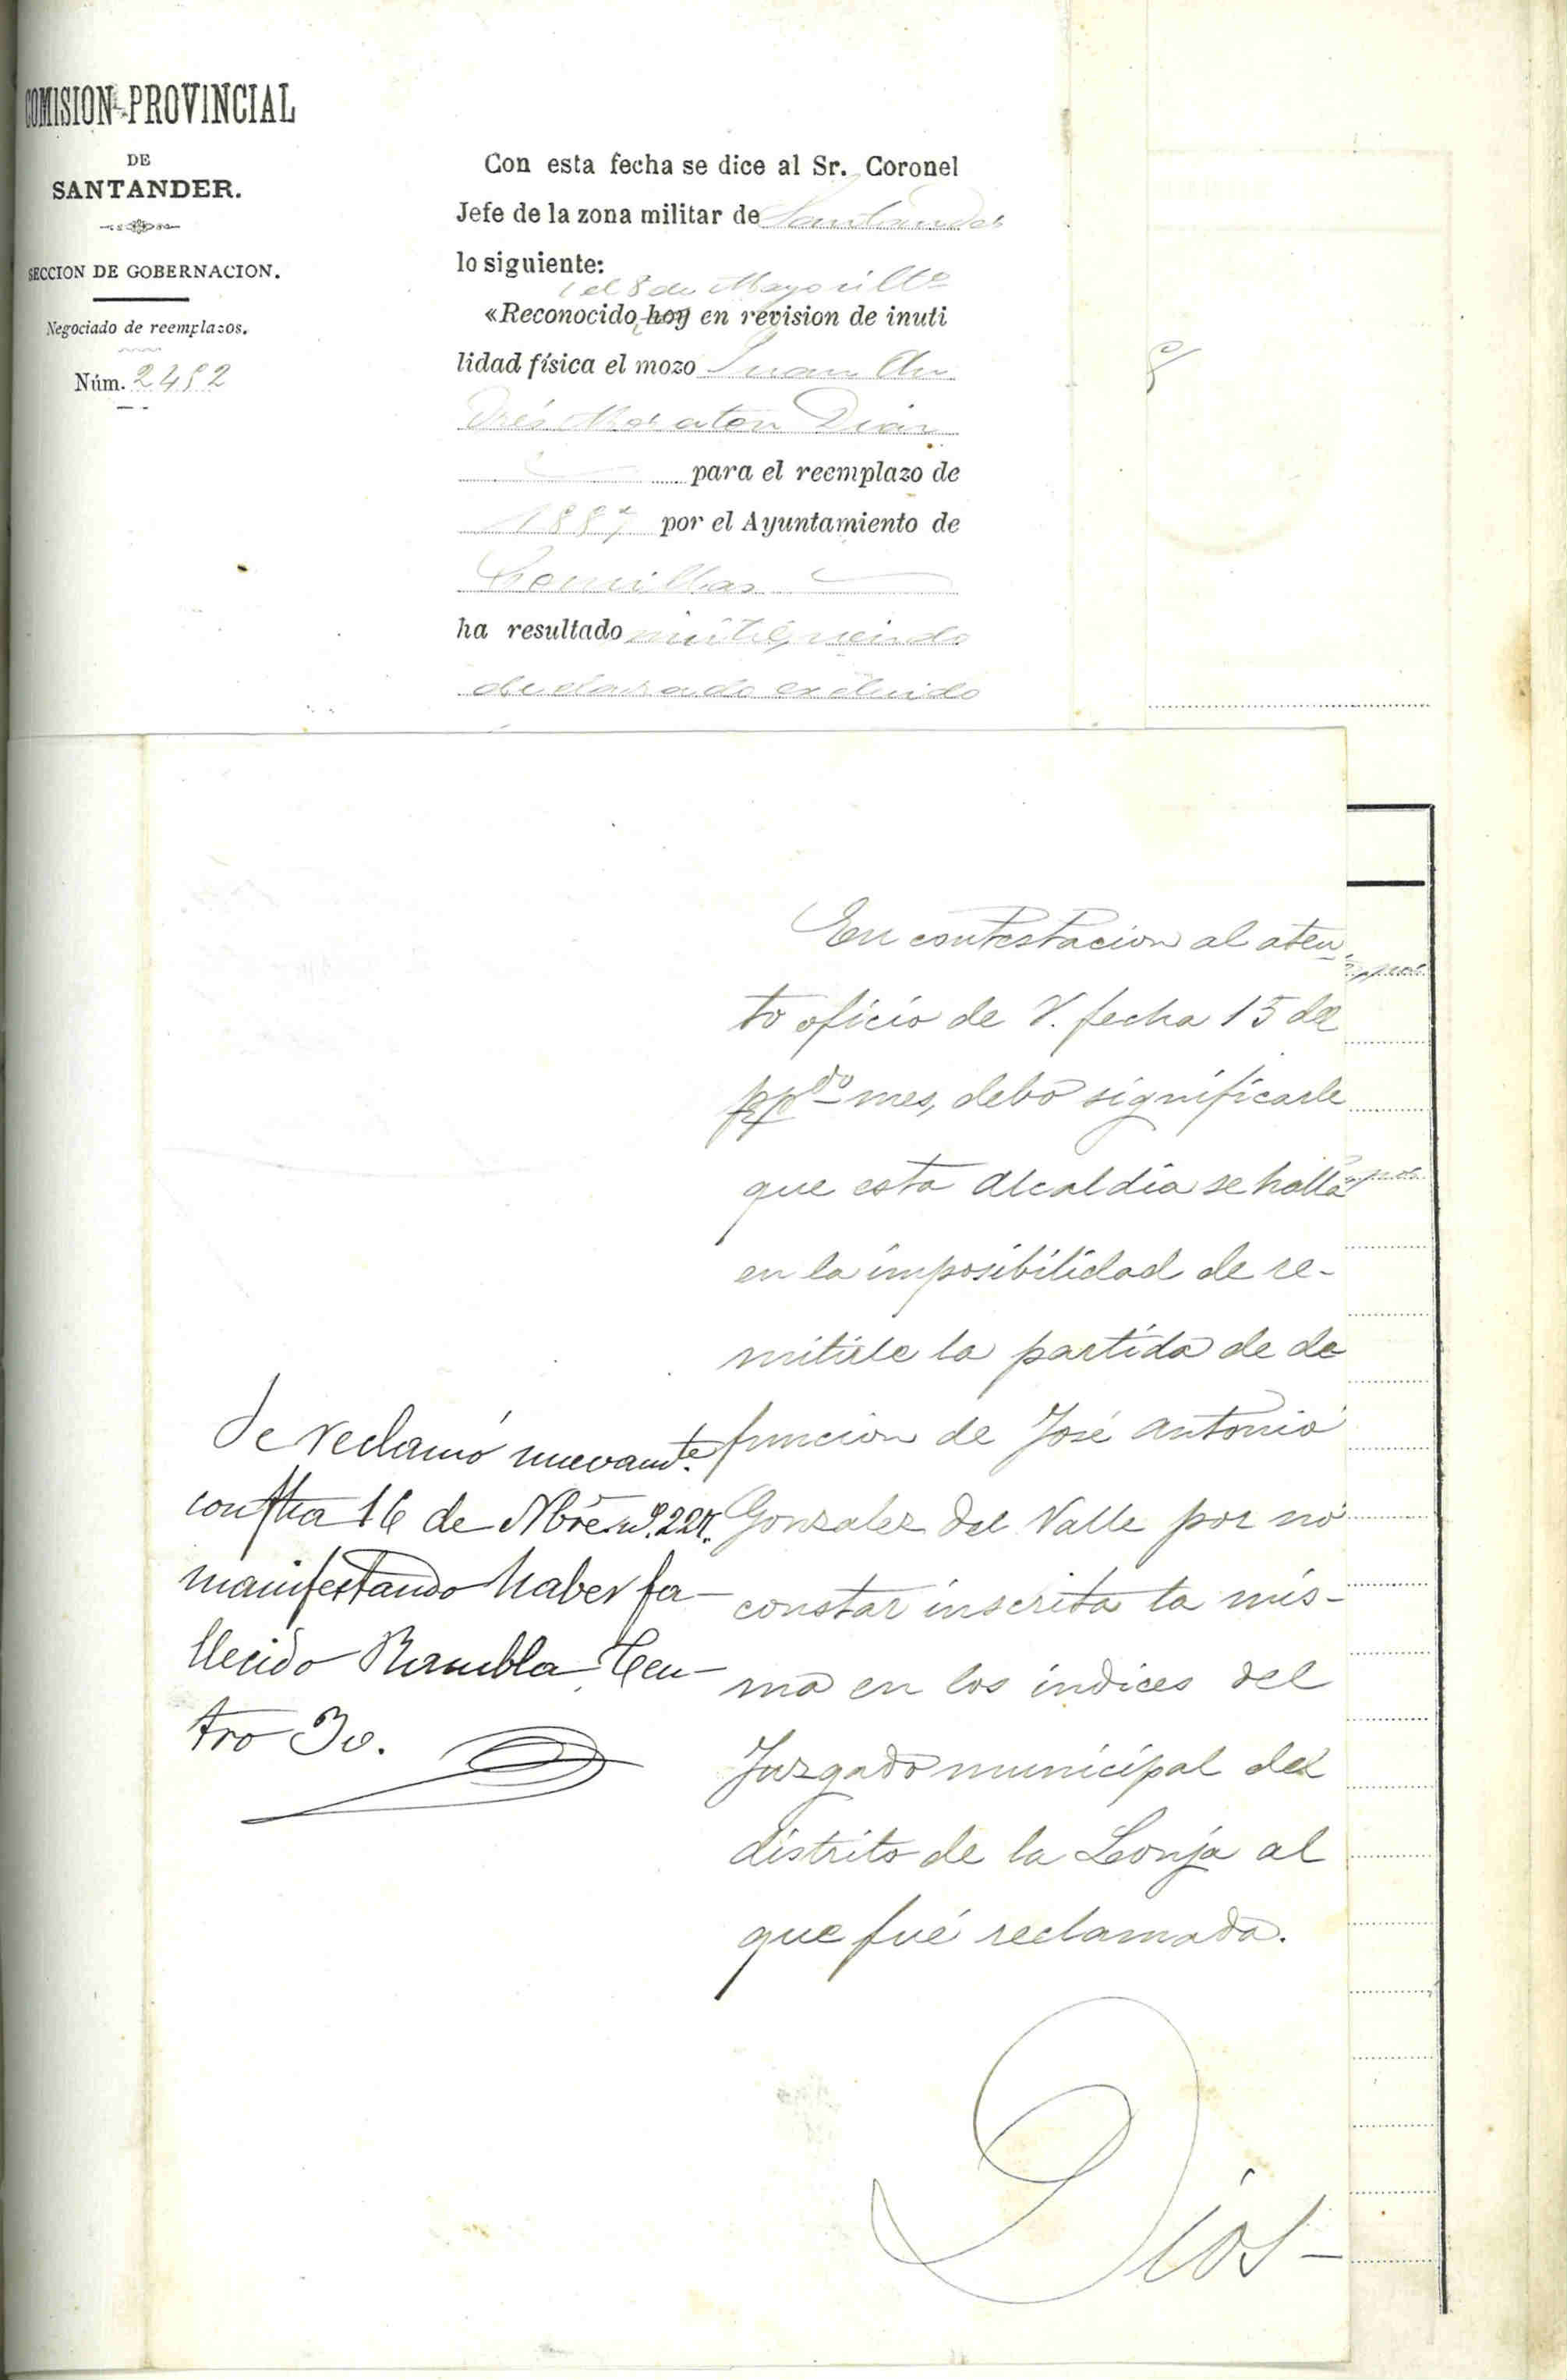 COMISION PROVINCIAL
DE
SANTANDER.
SECCION DE GOBERNACION.
Negociado de reemplazos.
Núm. 2482
Con esta fecha se dice al Sr. Coronel
Jefe de la zona militar de Santander
lo siguiente:
el 8 de Mayo últº
«Reconocido hoy en revision de inuti
lidad física el mozo Juan An
drés Moraton Diaz
para el reemplazo de
1887 por el Ayuntamiento de
Comillas
ha resultado inútil, siendo
declarado excluido
En contestacion al aten
to oficio de V. fecha 15 del
ppdo mes, debo significarle
que esta Alcaldia se halla
en la imposibilidad de re-
mitirle la partida de de
funcion de José Antonio
Gonzalez del Valle por no
constar inscrita la mis-
ma en los indices del
Juzgado municipal del
distrito de la Lonja al
que fué reclamada.
Dios-
Se reclamó nuevamte
con fha 16 de Nbre nº 227.
manifestando haber fa-
llecido Rambla Cen-
tro 30.